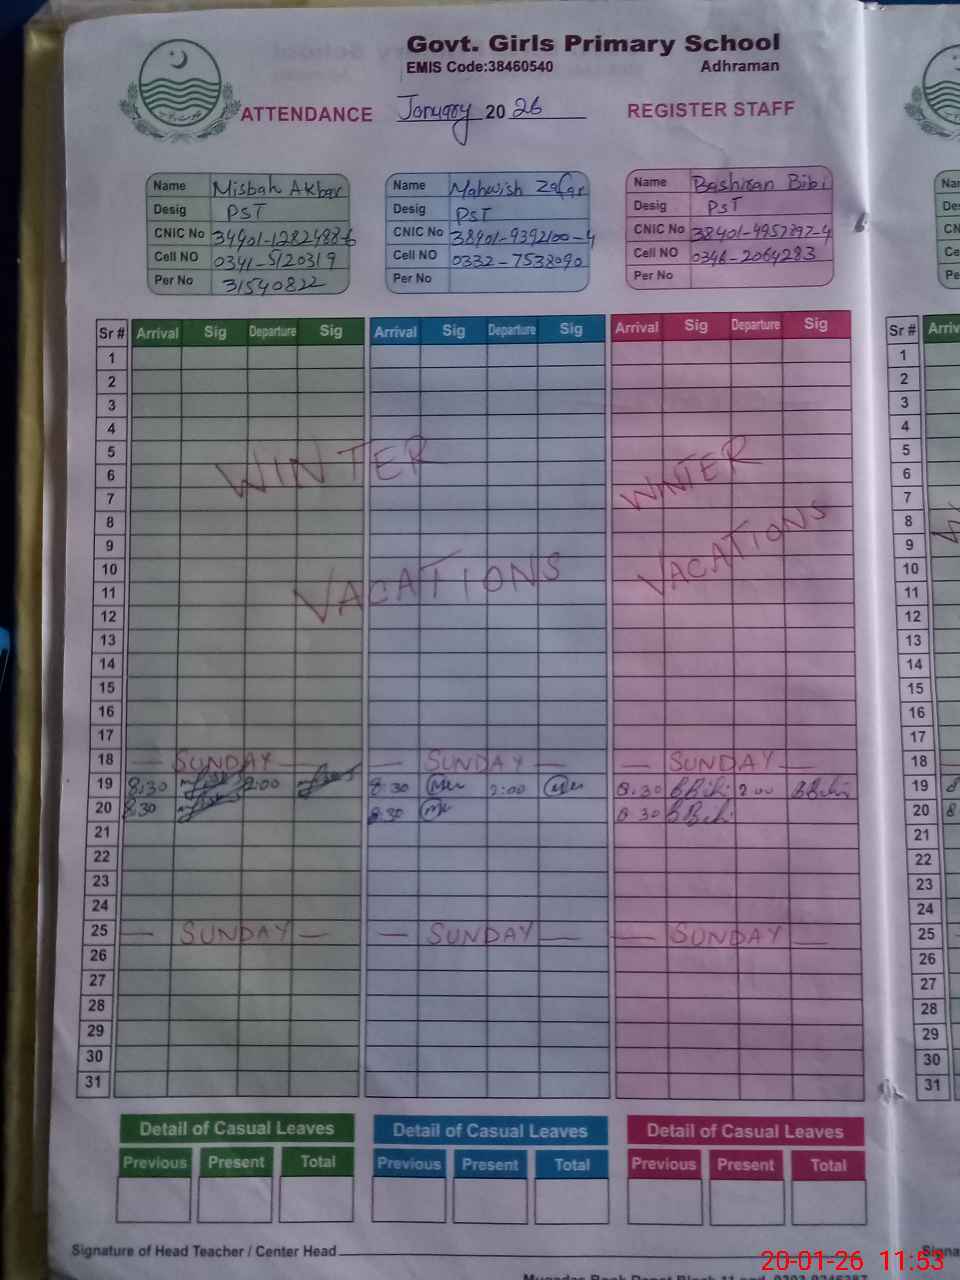 Govt. Girls Primary School
EMIS Code:38460540 Adhraman
ATTENDANCE January 20 26 REGISTER STAFF
Name Misbah Akbar
Desig PST
CNIC No
Cell NO 0341-5120319
Per No 31540822
Name Mahwish Zafar
Desig PST
CNIC No 38401-9392100-4
Cell NO 0332-7538090
Per No
Name Bashiran Bibi
Desig PST
CNIC No 38401-4957897-4
Cell NO 0346-2064283
Per No
Sr # Arrival Sig Departure Sig Arrival Sig Departure Sig Arrival Sig Departure Sig Sr #
1 1
2 2
3 3
4 4
5 5
6 6
7 7
8 8
9 9
10 10
11 11
12 12
13 13
14 14
15 15
16 16
17 17
WINTER VACATIONS
WINTER VACATIONS
18 — SUNDAY — — SUNDAY — — SUNDAY — 18
19 8:30 2:00 8:30 2:00 8:30 BBibi 2:00 BBibi 19 8
20 8:30 8:30 8:30 BBibi 20 8
21 21
22 22
23 23
24 24
25 — SUNDAY — — SUNDAY — — SUNDAY — 25
26 26
27 27
28 28
29 29
30 30
31 31
Detail of Casual Leaves Detail of Casual Leaves Detail of Casual Leaves
Previous Present Total Previous Present Total Previous Present Total
Signature of Head Teacher / Center Head
20-01-26 11:53